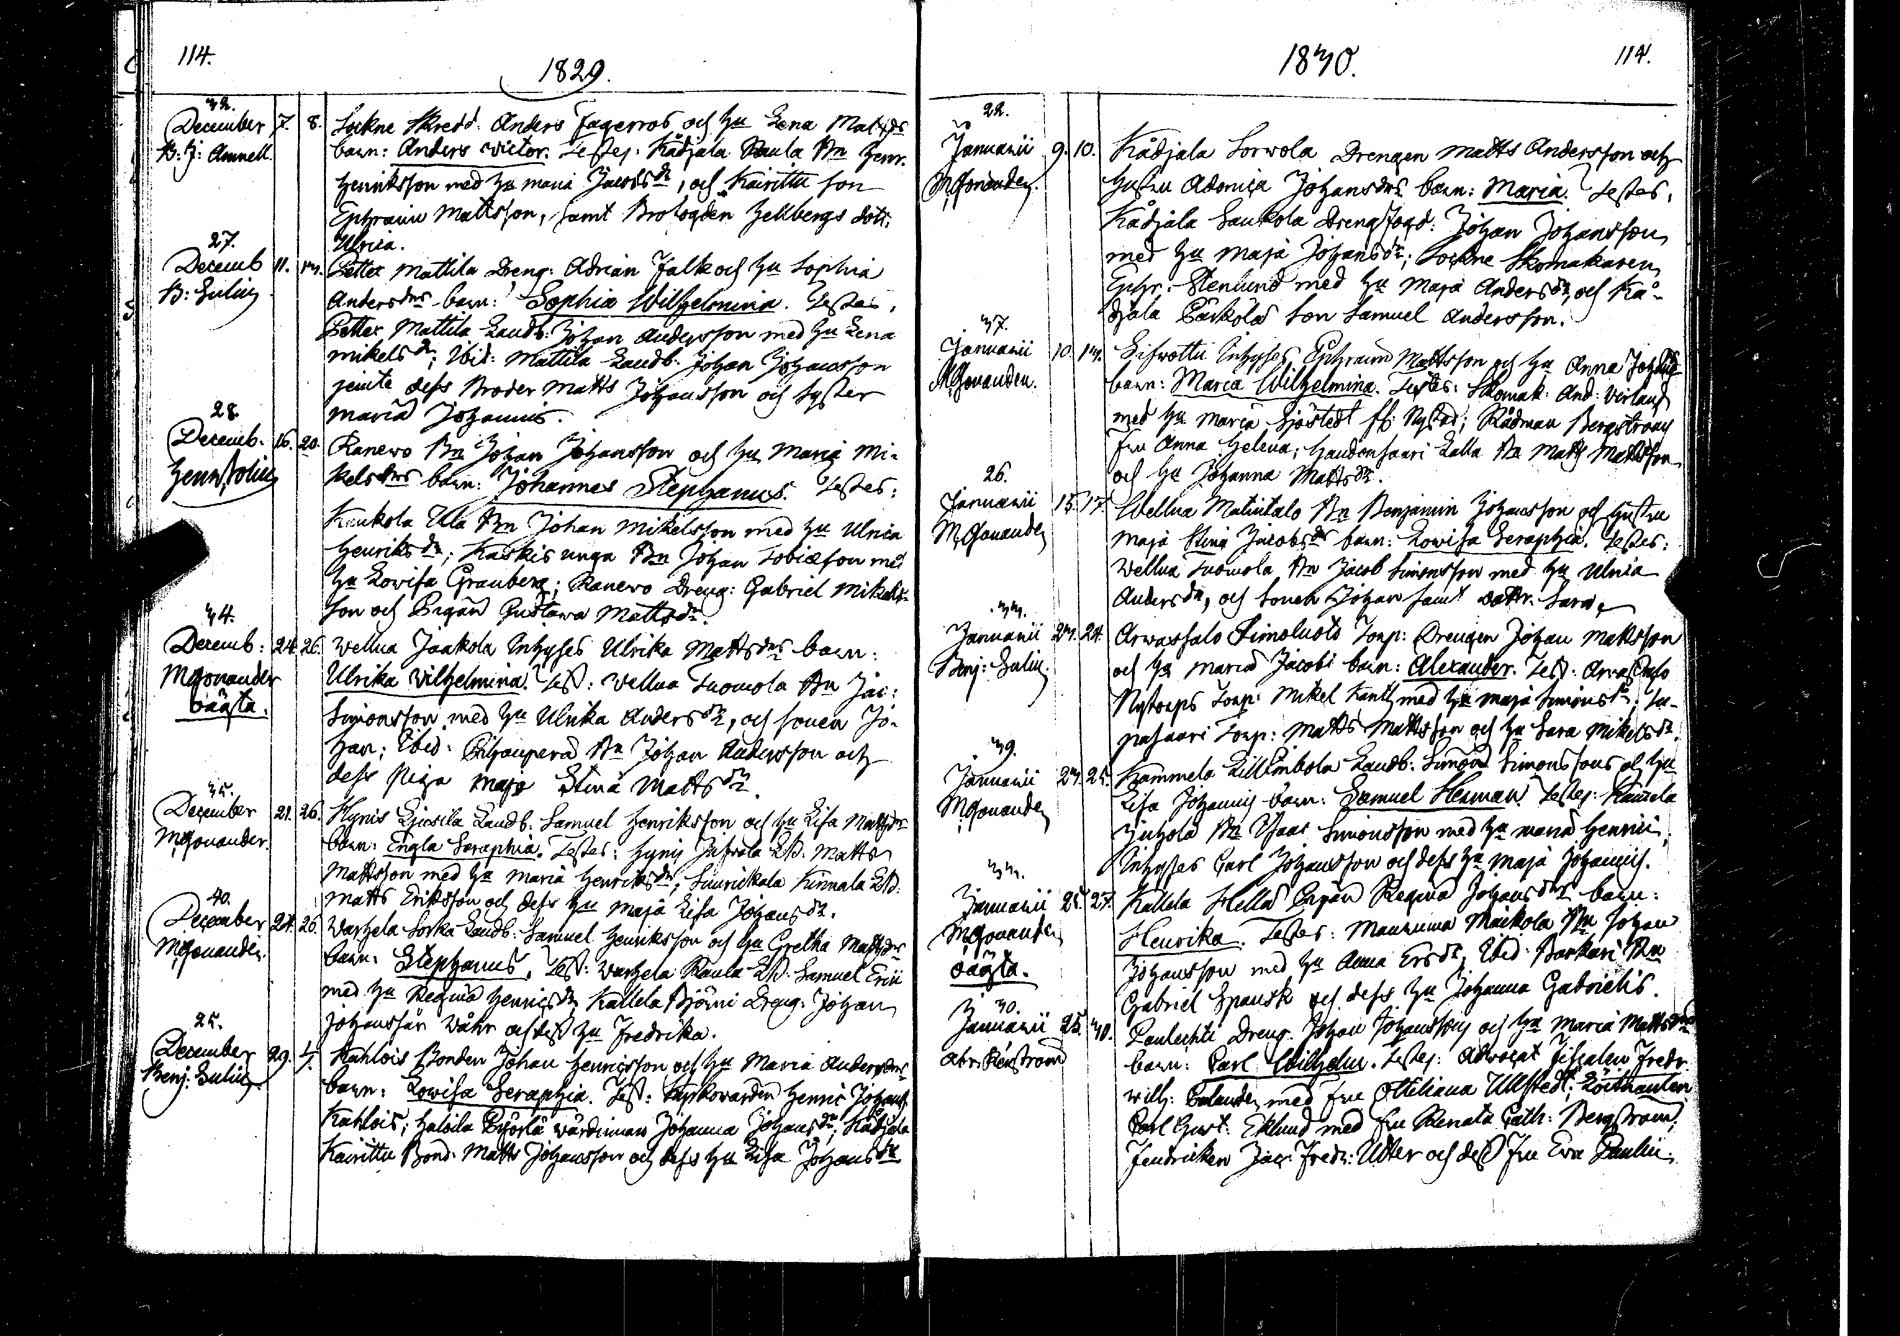 114.
1829.
32.
December 7. 8. Lockne Skredd. Anders Fagerros och Hu Lena Matsdrs
B: J: Amnell. barn: Anders Victor. Testes: Kådjala Paula Bn Henr.
Henriksson med Hu Maria Jacobsdr, och Kairittu son
Ephraim Mattsson, samt Hellbergs dottr.
Ulrica.
27.
Decemb 11. 13. Letter Mattila Dreng: Adrian Falk och Hu Sophia
B: Sulin Andersdrs barn: Sophia Wilhelmina. Testes,
Letter Mattila Landb. Johan Andersson med Hu Lena
Mikelsdr; Ibid: Mattila Landb. Johan Johansson
jemte dess Broder Matts Johansson och Syster
Maria Johannis.
28.
Decemb. 16. 20. Ranewo Bn Johan Johansson och Hu Maria Mi-
kelsdrs barn: Johannes Stephanus. Testes:
Kaukola Ula Bn Johan Mikelsson med Hu Ulrica
Henriksdr; Kaskis unga Bn Johan Tobiæson med
Hu Lowisa Granberg; Ranewo Dreng: Gabriel Mikels-
son och Pigan Gustawa Mattsdr.
34.
Decemb: 24. 26. Wellua Jaakola Inhyses Ulrika Mattsdrs barn:
M Gonander Ulrika Wilhelmina. Test: Wellua Suomola Bn Jac:
oägta. Simonsson med Hu Ulrika Andersdr, och sonen Jo-
han; Ibid: Bn Johan Andersson och
dess Piga Maja Stina Mattsdr.
35.
December 21. 26. Hynis Landb. Samuel Henriksson och Hu Lisa Mattsdr
M Gonander. barn: Engla Seraphia. Testes: Hynis Matts
Mattsson med Hu Maria Henriksdr; Suurickala Kinnala
Matts Eriksson och dess Hu Maja Lisa Johansdr.
40.
December 24. 26. Warhela Sorka Landb: Samuel Henriksson och Hu Gretha Mattsdrs
M Gonander. barn: Stephanus. Test: Warhela Raula Samuel Erici
med Hu Regina Henricsdr Kallela Björni Dreng: Johan
Johansson och dess Hu Fredrika.
25.
December 29. 4. Kahlois Bonden Johan Henricsson och Hu Maria Andersdrs
Benj: Sulin barn: Lowisa Seraphia. Test: Kyrkowärden Henric Johans
Kahlois; Pyörlä wärdinnan Johanna Johansdr; Kådjala
Kairittu Bond. Matts Johansson och dess Hu Lisa Johansdr
1830. 114.
22.
Januarii 9. 10. Kådjala Sorwola Drengen Matts Andersson och
M Gonander. Hustru Adonica Johansdrs barn: Maria. Testes,
Kådjala Saukola Drengfogd: Johan Johansson
med Hu Maja Johansdr; Lockne Skomakaren
Ephr. Stenlund med Hu Maja Andersdr och Kå-
djala Pärkola son Samuel Andersson.
37.
Januarii 10. 13. Inhyses Ephraim Mattsson och Hu Anna Johansdrs
M Gonander. barn: Maria Wilhelmina. Testes: Skomak: And: Verlund
med Hu Maria Sjöstedt fr: Nystad; Rådman Bergstroms
fru Anna Helena; Haudonsaari Lalla Bn Matts Mattsson
och Hu Johanna Mattsdr.
26.
Januarii 15. 17. Wellua Matintalo Bn Benjamin Johansson och Hustru
M Gonander Maja Stina Jacobsdrs barn: Lowisa Seraphia. Testes:
Wellua Suomola Bn Jacob Simonsson med Hu Ulrica
Andersdr, och sonen Johan samt dottr. Sara.
33.
Januarii 23. 24. Arwassalo Simoluoto Torp: Drengen Johan Mattsson
Benj: Sulin. och Hu Maria Jacobi barn: Alexander. Test: Arwassalo
Nystorps Torp: Mikel Kantt med Hu Maja Simonsdr; Lu-
pasaari Torp: Matts Mattsson och Hu Sara Mikelsdr.
39.
Januarii 23. 25. Kammela Landb: Simon Simonssons och Hu
M Gonander Lisa Johannis barn: Samuel Herman. Testes: Kamela
Juhola Bn Isaac Simonsson med Hu Maria Henrici;
Inhyses Carl Johansson och dess Hu Maja Johannis.
33.
Januarii 25. 27. Kallela Hella Pigan Regina Johansdrs barn:
M Gonander Henrika. Testes: Maununa Markola Bn Johan
oägta. Johansson med Hu Anna Ersdr, Ibid: Barkari Bn
Gabriel Spansk och dess Hu Johanna Gabrielis.
30.
Januarii 25. 30. Paulechti Dreng. Johan Johansson och Hu Maria Mattsdrs
barn: Carl Wilhelm. Testes: Advocat Fiscalen Fredr.
Wilh: med fru Ottiliana Ullstedt; Löitnanten
Carl Gust: Eklund med fru Renata Cath: Bergstrom,
Fendricken Jac: Fredr: Utter och dess Fru Eva Paulin.